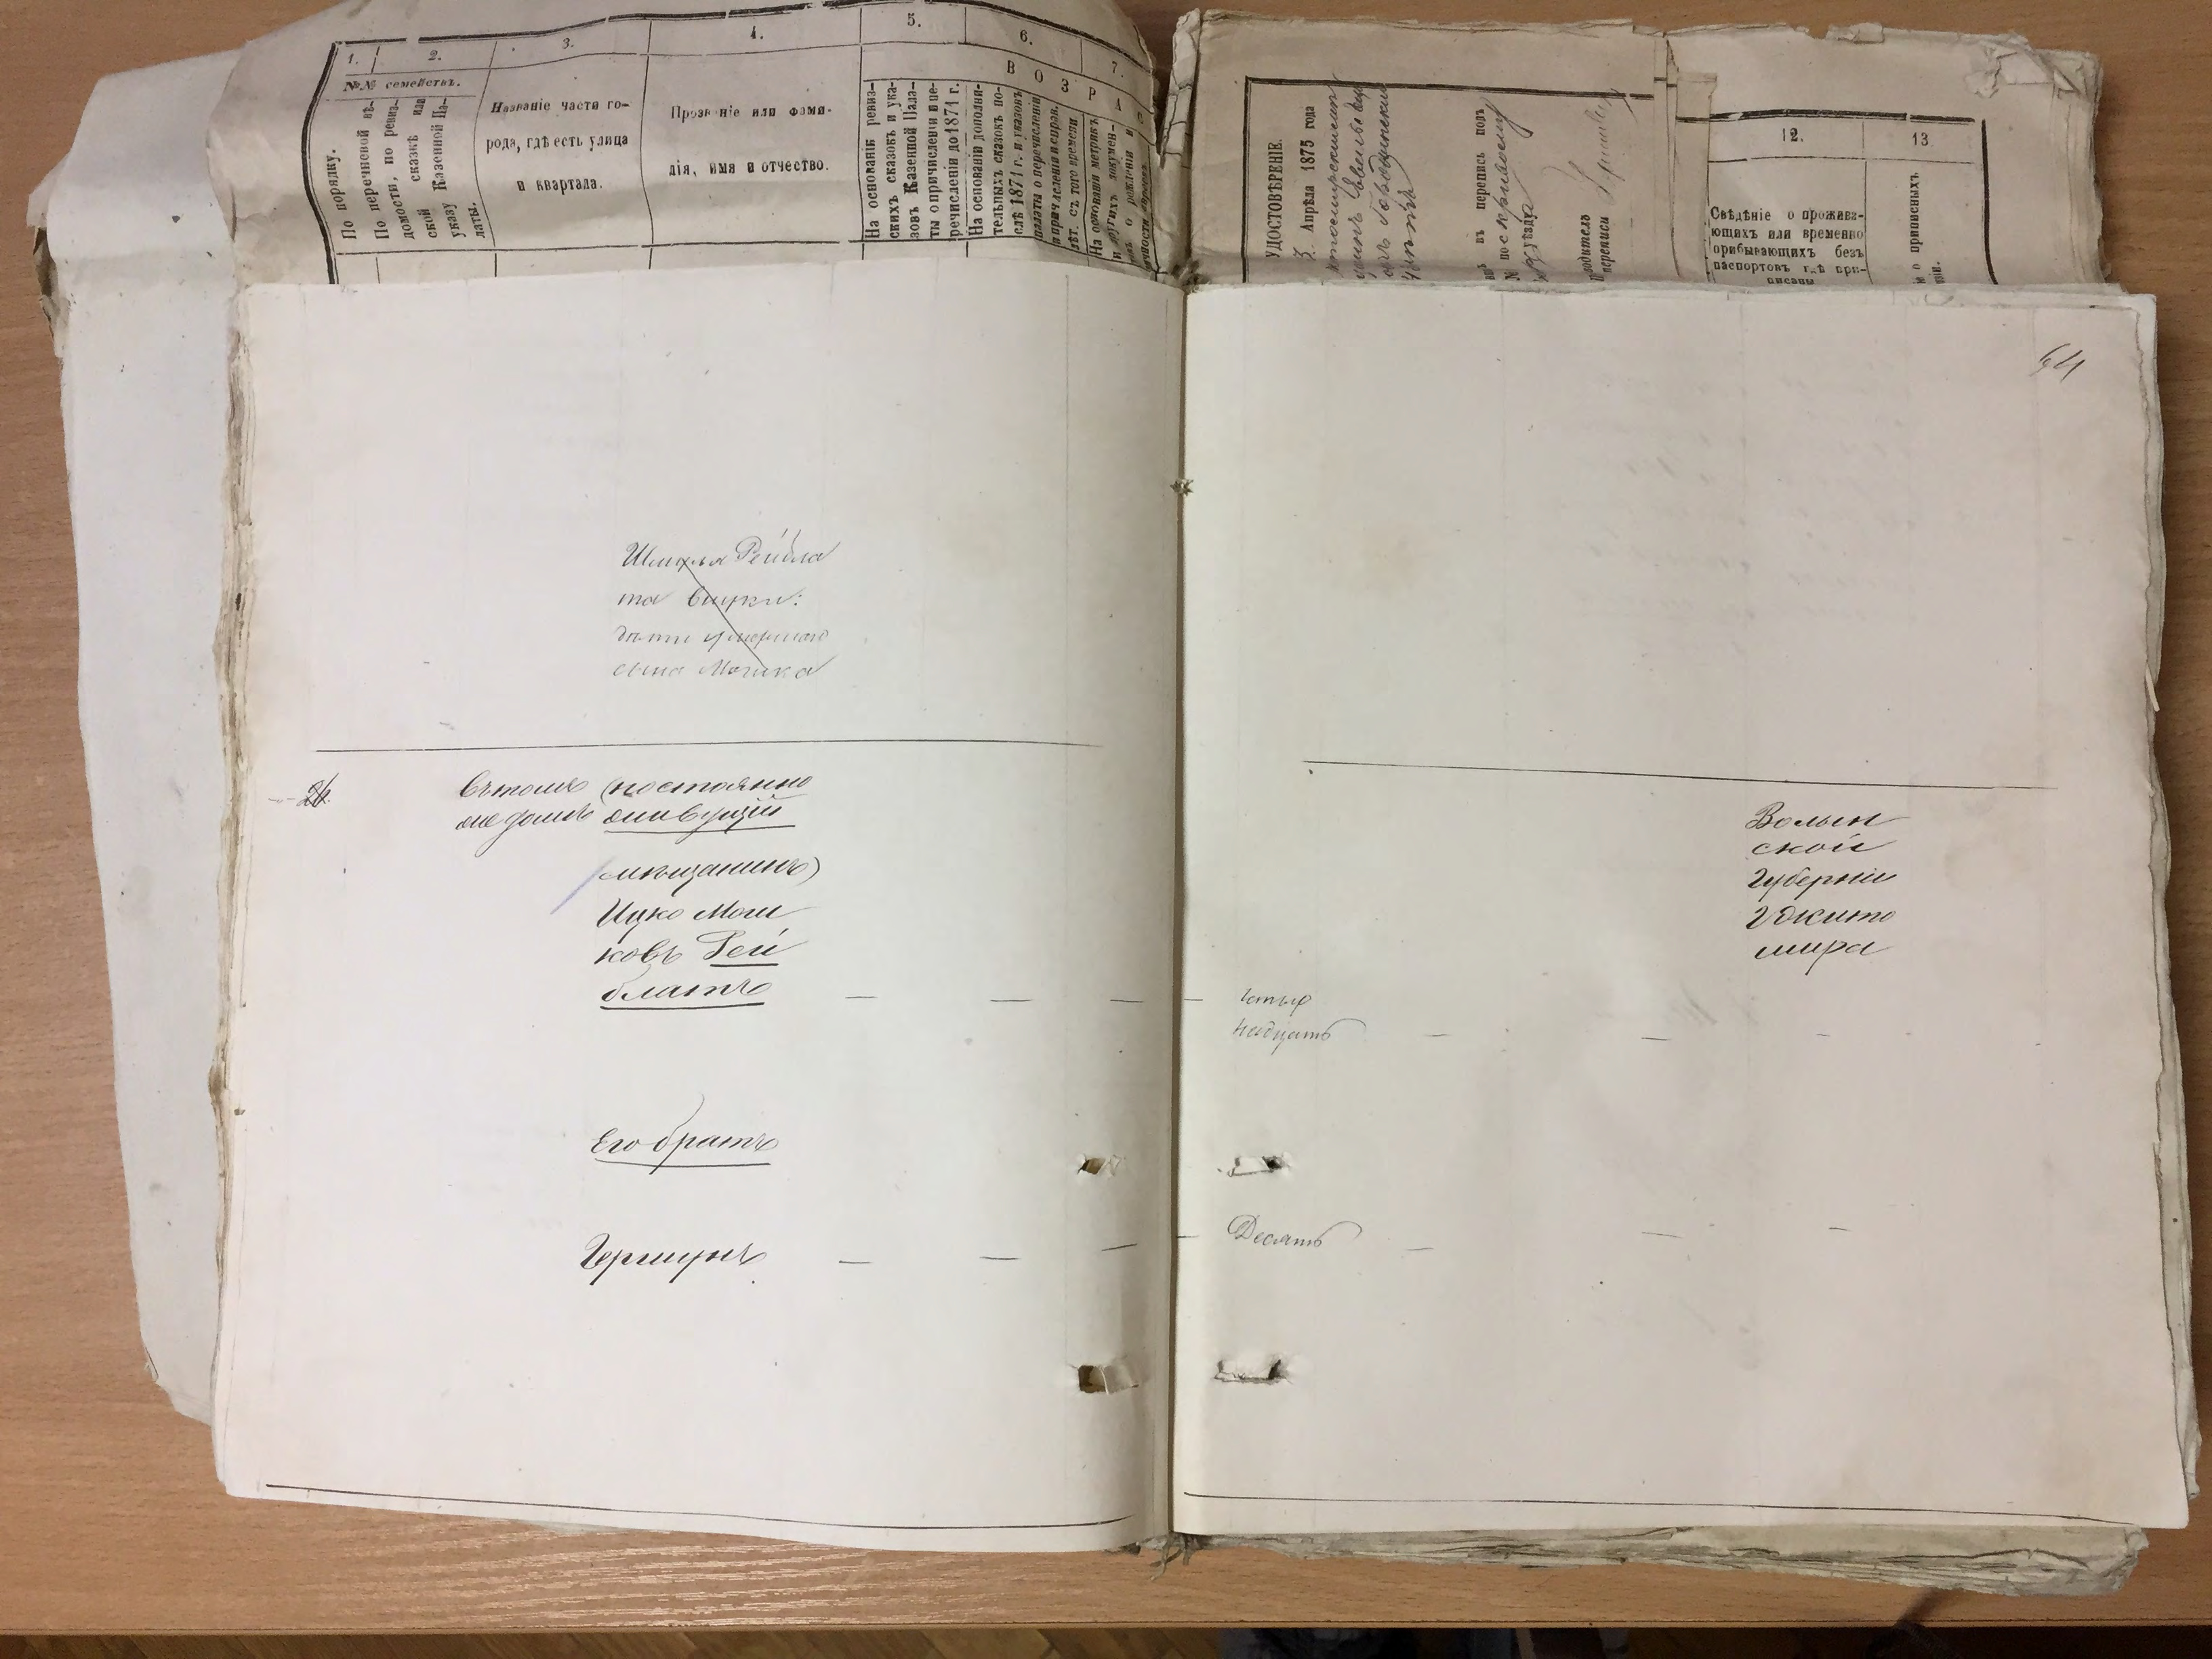 1.
2.
3.
4.
5.
6.
7.
В О З Р А С
№№ семействъ.
По порядку.
По перечневой вѣ-
домости, по ревиз-
ской сказкѣ или
указу Казенной Па-
латы.
Названіе части го-
рода, гдѣ есть улица
и квартала.
Прозваніе или фами-
лія, имя и отчество.
На основаніи ревиз-
скихъ сказокъ и ука-
зовъ Казенной Пала-
ты о причисленіи и пе-
речисленіи до 1871 г.
На основаніи дополни-
тельныхъ сказокъ по-
слѣ 1871 г. и указовъ
палаты о перечисленіи
и причисленіи и справ.
лѣт. съ того времени
На основаніи метрикъ
и другихъ докумен-
о рожденіи и
УДОСТОВѢРЕНІЕ.
3. Апрѣля 1875 года
въ перепись подъ
№
уѣзда
переписи
12.
13.
Свѣдѣніе о прожива-
ющихъ или временно
прибывающихъ безъ
паспортовъ гдѣ при-
писаны
о приписныхъ
64
Шмуля Рейбла
та внуки:
дѣти умершаго
сына Мошка
26.
Въ томъ (постоянно
же домѣ живущій
мѣщанинъ)
Ицко Мош
ковъ Рей
блатъ
Волын
ской
Губерніи
Г Жито
мира
четыр
надцать
Его братъ
Гершунъ
Десять